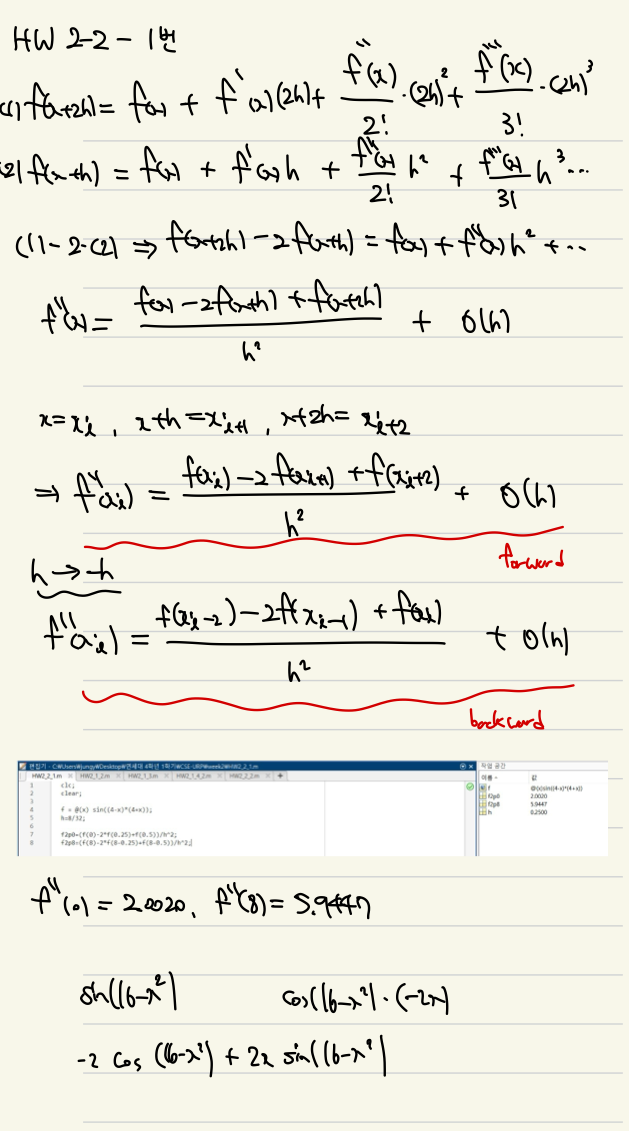 HW 2-2 - 1번
(1) f(x+2h) = f(x) + f'(x)(2h) + f''(x)/2! · (2h)² + f'''(x)/3! · (2h)³
(2) f(x+h) = f(x) + f'(x)h + f''(x)/2! h² + f'''(x)/3! h³ ...
(1) - 2·(2) ⇒ f(x+2h) - 2f(x+h) = f(x) + f''(x)h² + ...
f''(x) = (f(x) - 2f(x+h) + f(x+2h))/h² + O(h)
x = xᵢ , x+h = xᵢ₊₁ , x+2h = xᵢ₊₂
⇒ f''(xᵢ) = (f(xᵢ) - 2f(xᵢ₊₁) + f(xᵢ₊₂))/h² + O(h)
forward
h → -h
f''(xᵢ) = (f(xᵢ₋₂) - 2f(xᵢ₋₁) + f(xᵢ))/h² + O(h)
backward
편집기 - C:\Users\jungy\Desktop\연세대 4학년 1학기\CSE-URP\week2\HW2_2_1.m
HW2_2_1.m HW2_1_2.m HW2_1_3.m HW2_1_4_2.m HW2_2_2.m +
1 clc;
2 clear;
3
4 f = @(x) sin((4-x)*(4+x));
5 h=8/32;
6
7 f2p0=(f(0)-2*f(0.25)+f(0.5))/h^2;
8 f2p8=(f(8)-2*f(8-0.25)+f(8-0.5))/h^2;
작업 공간
이름 값
f @(x)sin((4-x)*(4+x))
f2p0 2.0020
f2p8 5.9447
h 0.2500
f''(0) = 2.0020, f''(8) = 5.9447
sin(16-x²) cos(16-x²)·(-2x)
-2 cos(16-x²) + 2x sin(16-x²)